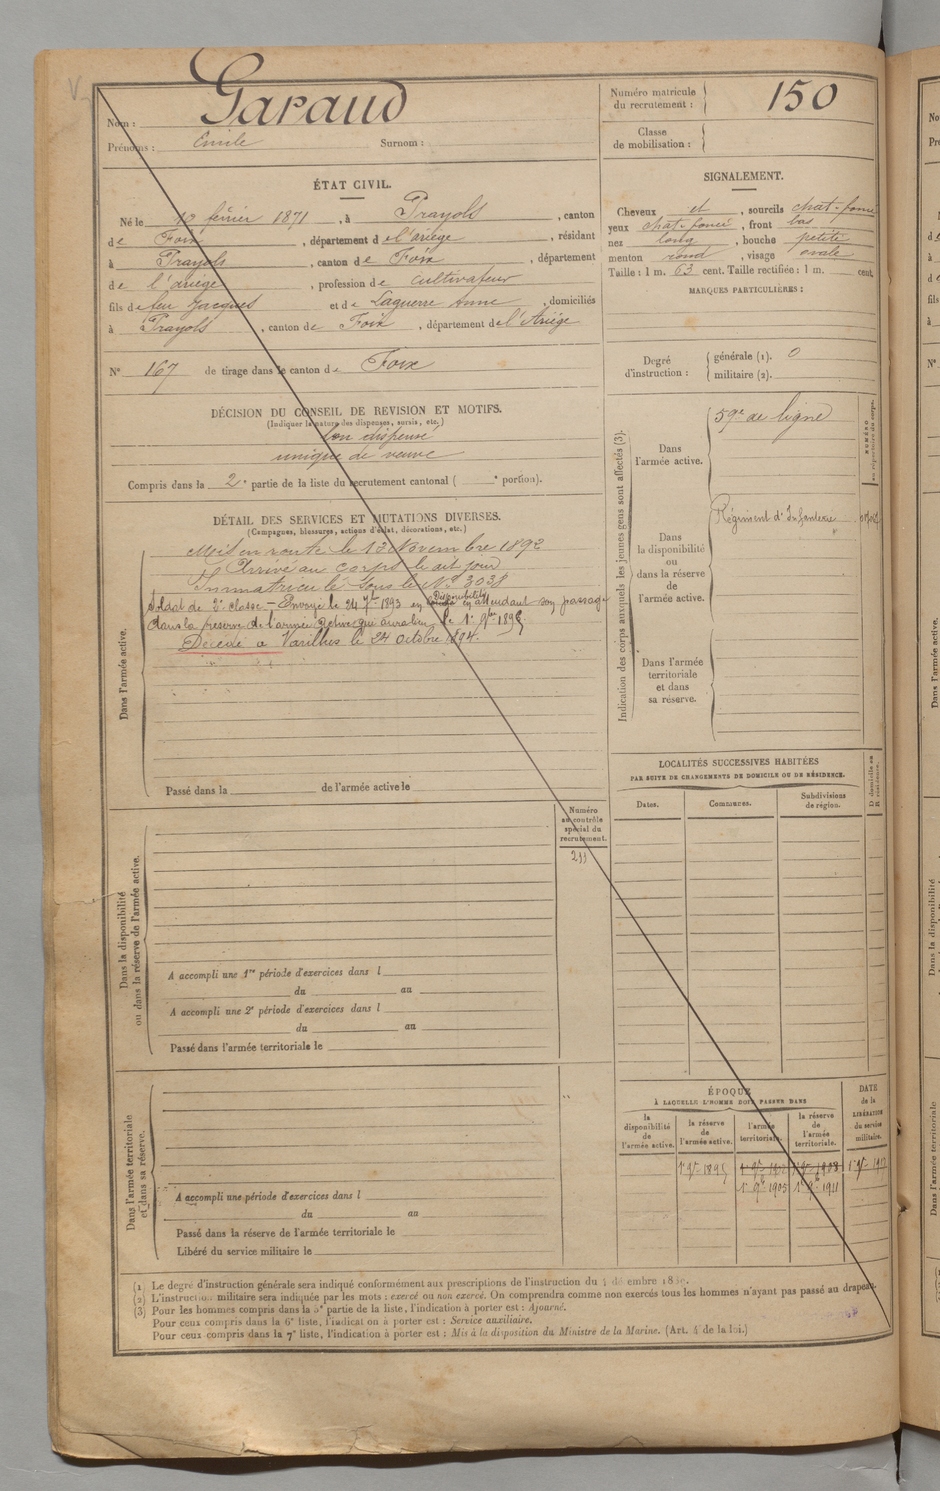 Nom : Garaud
Prénoms : Emile Surnom :
Numéro matricule
du recrutement : 150
Classe
de mobilisation :
ÉTAT CIVIL.
Né le 12 février 1871, à Prayols, canton
de Foix, département de l'ariège, résidant
à Prayols, canton de Foix, département
de l'ariège, profession de cultivateur
fils de feu Jacques et de Laguerre Anne, domiciliés
à Prayols, canton de Foix, département de l'Ariège
N° 167 de tirage dans le canton de Foix
SIGNALEMENT.
Cheveux et, sourcils chat-foncé
yeux chat-foncé, front bas
nez long, bouche petite
menton rond, visage ovale
Taille : 1 m. 63 cent. Taille rectifiée : 1 m. cent.
MARQUES PARTICULIÈRES :
Degré
d'instruction :
générale (1). 0
militaire (2).
DÉCISION DU CONSEIL DE REVISION ET MOTIFS.
(Indiquer la nature des dispenses, sursis, etc.)
bon dispensé
unique de veuve
Compris dans la 2e partie de la liste du recrutement cantonal ( e portion).
DÉTAIL DES SERVICES ET MUTATIONS DIVERSES.
(Campagnes, blessures, actions d'éclat, décorations, etc.)
Dans l'armée active.
Mis en route le 13 Novembre 1892
Arrivé au corps le dit jour
Immatriculé sous le N° 3038
Disponibilité
Soldat de 2e classe - Envoyé le 24 7bre 1893 en en attendant son passage
dans la réserve de l'armée active qui aura lieu le 1er 9bre 1895
Décédé à Varilhes le 24 Octobre 1894.
Passé dans la de l'armée active le
Indication des corps auxquels les jeunes gens sont affectés (3).
Dans
l'armée active.
59e de ligne
NUMÉRO
au répertoire du corps.
Dans
la disponibilité
ou
dans la réserve
de
l'armée active.
Régiment d'Infanterie
Dans l'armée
territoriale
et dans
sa réserve.
LOCALITÉS SUCCESSIVES HABITÉES
PAR SUITE DE CHANGEMENTS DE DOMICILE OU DE RÉSIDENCE.
Dates. Communes. Subdivisions
de région.
D domicile ou
R résidence.
Dans la disponibilité
ou dans la réserve de l'armée active.
Numéro
au contrôle
spécial du
recrutement.
211
A accompli une 1re période d'exercices dans l
du au
A accompli une 2e période d'exercices dans l
du au
Passé dans l'armée territoriale le
Dans l'armée territoriale
et dans sa réserve.
A accompli une période d'exercices dans l
du au
Passé dans la réserve de l'armée territoriale le
Libéré du service militaire le
ÉPOQUE
À LAQUELLE L'HOMME DOIT PASSER DANS
la
disponibilité
de
l'armée active.
la réserve
de
l'armée active.
l'armée
territoriale.
la réserve
de
l'armée
territoriale.
DATE
de la
LIBÉRATION
du service
militaire.
1er 9bre 1895 1er 9bre 1908
1er 9bre 1905 1er 9bre 1911
(1) Le degré d'instruction générale sera indiqué conformément aux prescriptions de l'instruction du 4 décembre
(2) L'instruction militaire sera indiquée par les mots : exercé ou non exercé. On comprendra comme non exercés tous les hommes n'ayant pas passé au drapeau.
(3) Pour les hommes compris dans la 5e partie de la liste, l'indication à porter est : Ajourné.
Pour ceux compris dans la 6e liste, l'indication à porter est : Service auxiliaire.
Pour ceux compris dans la 7e liste, l'indication à porter est : Mis à la disposition du Ministre de la Marine. (Art. 4 de la loi.)